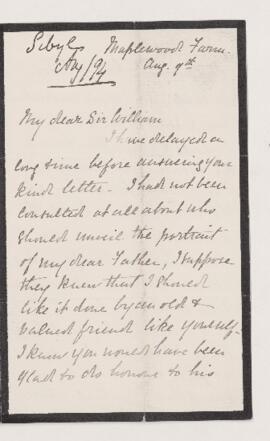 Maplewood Farm.
Aug. 9th
My dear Sir William
I have delayed a
long time before answering your
kind letter. I had not been
consulted at all about who
should unveil the portrait
of my dear Father, I suppose
they knew that I should
like it done by an old &
valued friend like yourself.
I know you would have been
glad to do honour to his